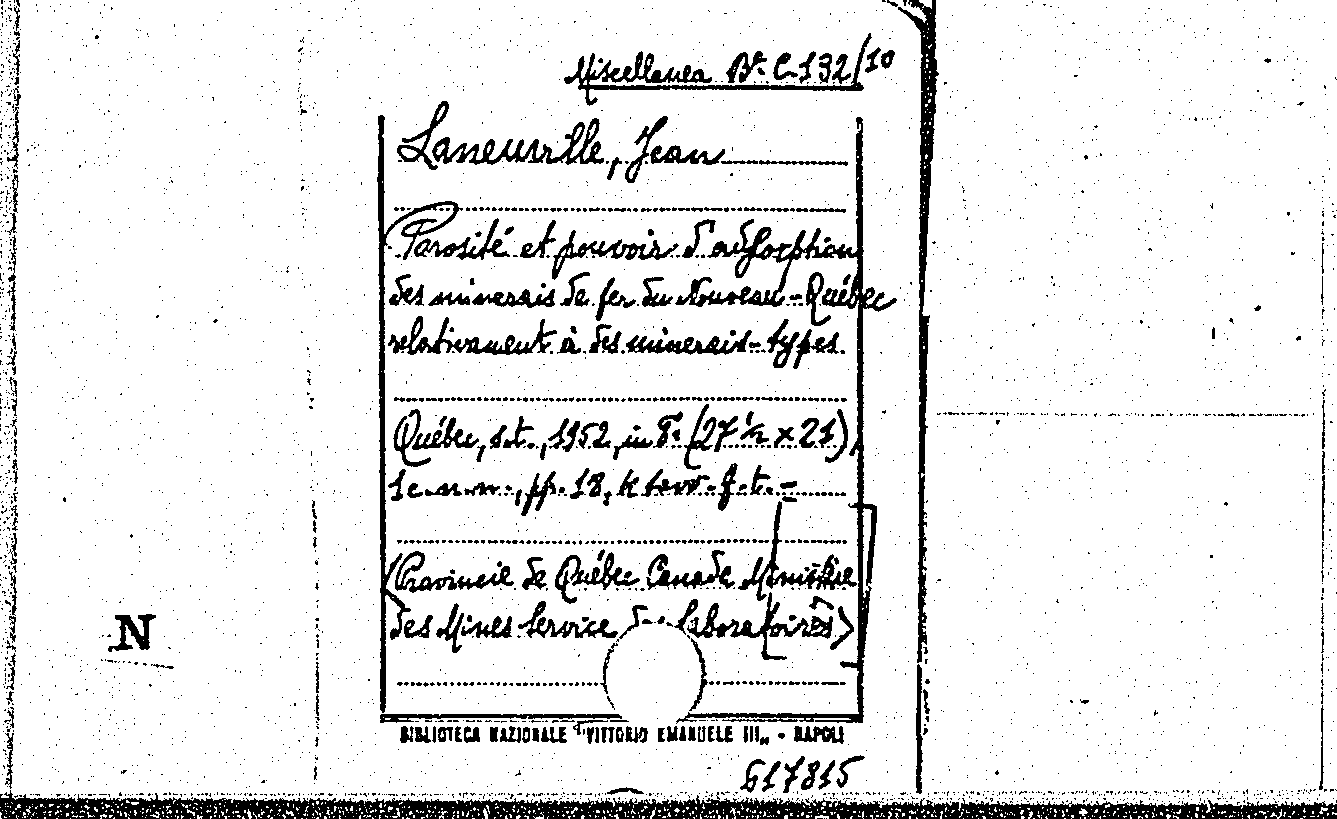 Miscellanea Bª. C 132/10
Laneuville, Jean
Porosité et pouvoir d'adsorption
des minerais de fer du Nouveau-Québec
relativement à des minerais-types
Québec, s.t., 1952, in 8°. (27 ½ x 21),
1 c.n.n., pp. 18, f.t. -
(Provincie de Québec Canada Ministère
des Mines Service des Laboratoires)
N
BIBLIOTECA NAZIONALE "VITTORIO EMANUELE III" - NAPOLI
617815